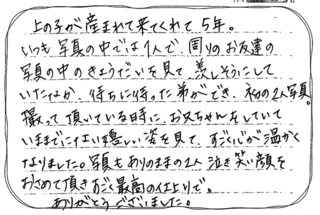 上の子が産まれて来てくれて5年。
いつも写真の中では1人で、周りのお友達の
写真の中のきょうだいを見て、羨しそうにして
いたなか、待ちに待った弟ができ、初の2人写真。
撮って頂いている時に、お兄ちゃんをしていて
いままでにない嬉しい姿を見て、すごく心が温かく
なりました。写真もありのままの2人、泣き笑い顔を
おさめて頂きすごく最高の仕上りで。
ありがとうございました。